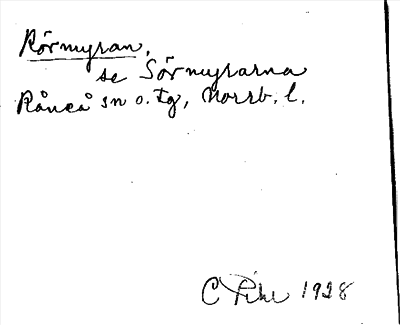 Rörmyran,
se Sörmyrarna
Råneå sn o. tg, Norrb. l.
C Pihl 1928